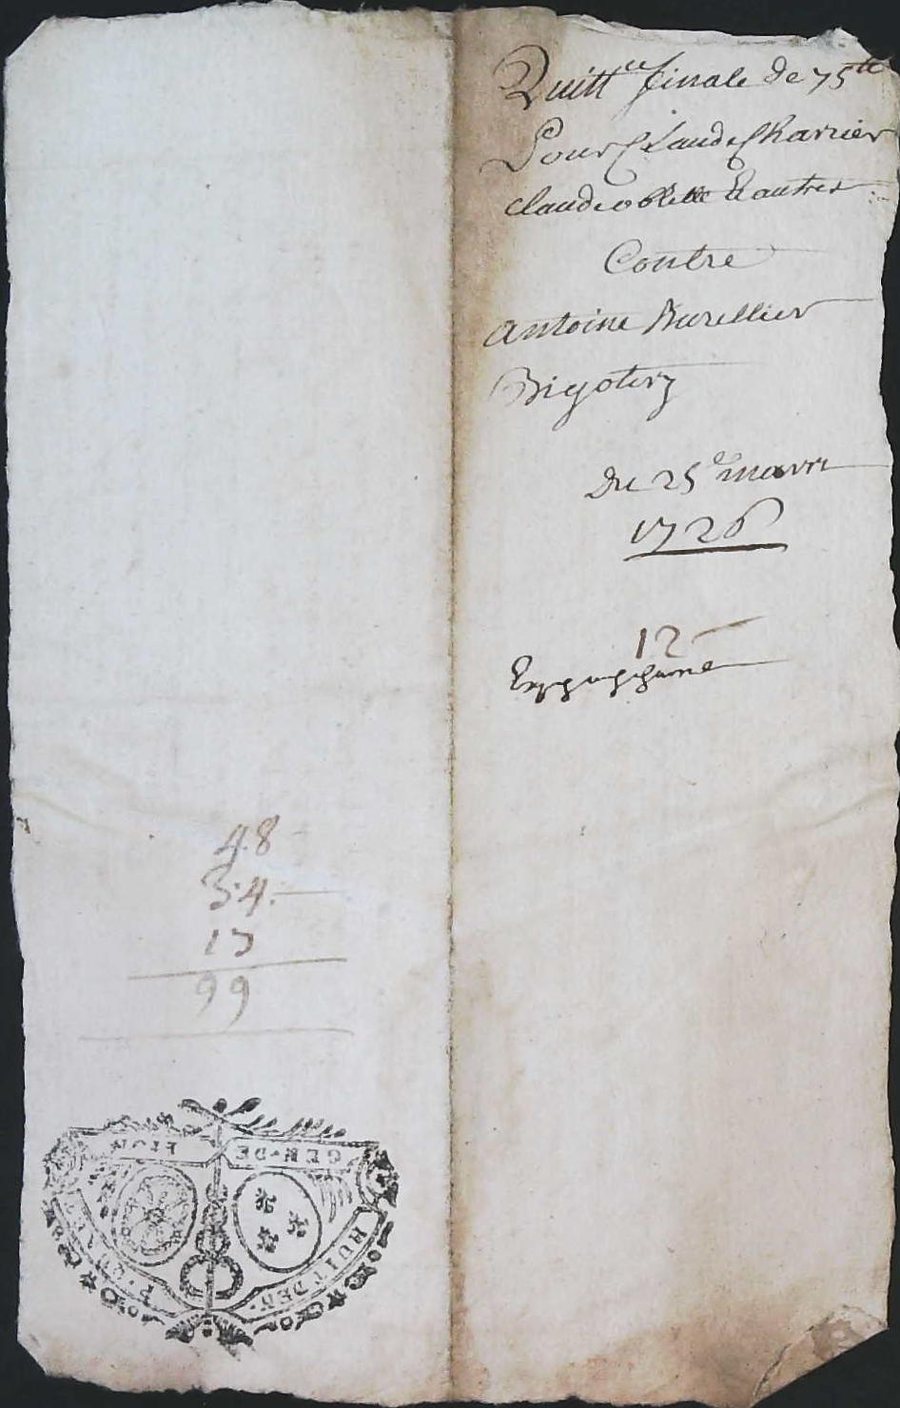 Quitt.ce finale de 75 tt
Pour Claude Charrier
Claude oblette & autres
Contre
Antoine Burellier
Bigotery
Du 25e mars
1726
12
48
34
17
99
GEN · DE
HUIT DEN.